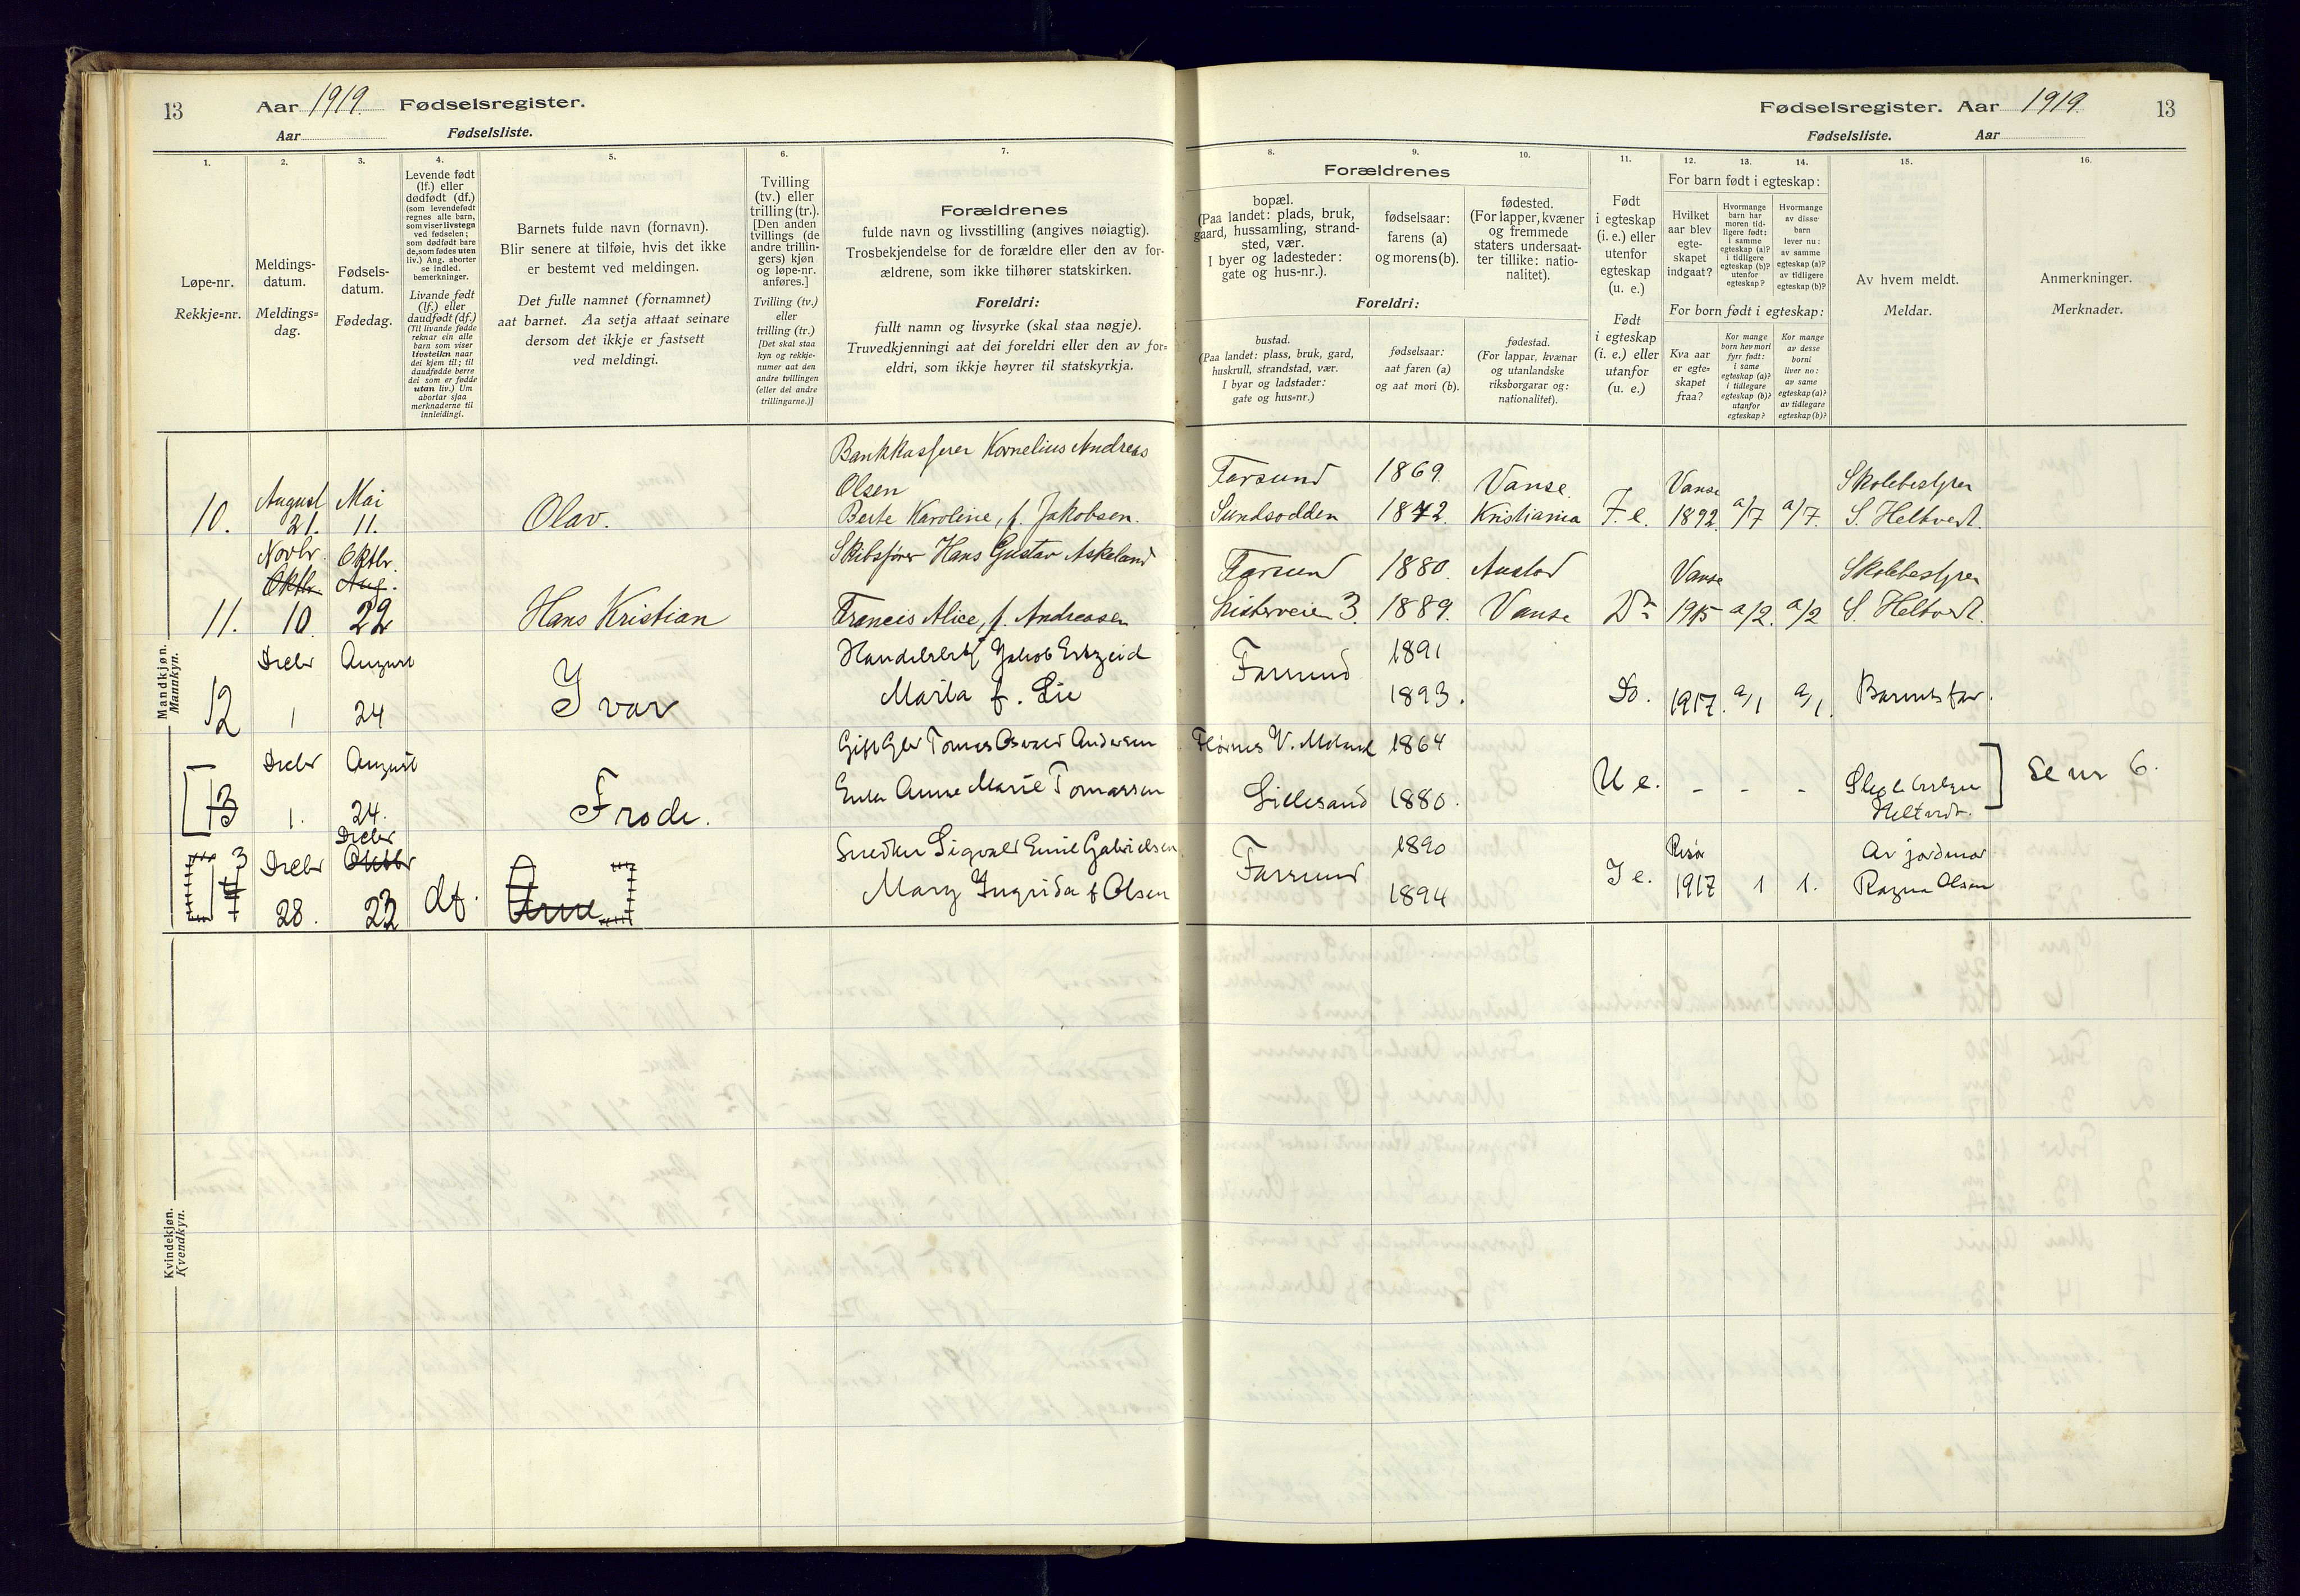 13 Aar 1919. Fødselsregister.
Aar Fødselsliste.
Fødselsregister. Aar 1919. 13
Fødselsliste. Aar
1.
Løpe-nr.
Rekkje=nr.
2.
Meldings-
datum.
Meldings=
dag.
3.
Fødsels-
datum.
Fødedag.
4.
Levende født
(lf.) eller
dødfødt (df.)
(som levendefødt
regnes alle barn,
som viser livstegn
ved fødselen;
som dødfødt bare
de, som fødes uten
liv.) Ang. aborter
se indled.
bemerkninger.
Livande født
(lf.) eller
daudfødt (df.)
(Til livande fødde
reknar ein alle
barn som viser
livsteikn naar
dei kjem til; til
daudfødde berre
dei som er fødde
utan liv.) Um
abortar sjaa
merknaderne til
innleidingi.
5.
Barnets fulde navn (fornavn).
Blir senere at tilføie, hvis det ikke
er bestemt ved meldingen.
Det fulle namnet (fornamnet)
aat barnet. Aa setja attaat seinare
dersom det ikkje er fastsett
ved meldingi.
6.
Tvilling
(tv.) eller
trilling (tr.).
[Den anden
tvillings (de
andre trillin-
gers) kjøn
og løpe-nr.
anføres.]
Tvilling (tv.)
eller
trilling (tr.)
[Det skal staa
kyn og rekkje-
numer aat den
andre tvillingen
(eller dei andre
trillingarne.)]
7.
Forældrenes
fulde navn og livsstilling (angives nøiagtig).
Trosbekjendelse for de forældre eller den av for-
ældrene, som ikke tilhører statskirken.
Foreldri:
fullt namn og livsyrke (skal staa nøgje).
Truvedkjenningi aat dei foreldri eller den av for=
eldri, som ikkje høyrer til statskyrkja.
Forældrenes
8.
bopæl.
(Paa landet: plads, bruk,
gaard, hussamling, strand-
sted, vær.
I byer og ladesteder:
gate og hus-nr.).
9.
fødselsaar:
farens (a)
og morens (b).
10.
fødested.
(For lapper, kvæner
og fremmede
staters undersaat-
ter tillike: natio-
nalitet).
Foreldri:
bustad.
(Paa landet: plass, bruk, gard,
huskrull, strandstad, vær.
I byar og ladstader:
gate og hus=nr.)
fødselsaar:
aat faren (a)
og aat mori (b).
fødestad.
(For lappar, kvænar
og utanlandske
riksborgarar og:
nationalitet).
11.
Født
i egteskap
(i. e.) eller
utenfor
egteskap
(u. e.)
Født
i egteskap
(i. e.) eller
utanfor
(u. e.)
12. 13. 14.
For barn født i egteskap:
Hvilket
aar blev
egte-
skapet
indgaat?
Hvormange
barn har
moren tid-
ligere født:
i samme
egteskap (a)?
i tidligere
egteskap (b)?
utenfor
egteskap?
Hvormange
av disse
barn
lever nu:
av samme
egteskap (a)?
av tidligere
egteskap (b)?
For born født i egteskap:
Kva aar
er egte=
skapet
fraa?
Kor mange
born hev mori
fyrr født:
i same
egteskap (a)?
i tidlegare
egteskap (b)?
utanfor
egteskap?
Kor mange
av desse
borni
liver no:
av same
egteskap (a)?
av tidlegare
egteskap (b)?
15.
Av hvem meldt.
Meldar.
16.
Anmerkninger.
Merknader.
Mandkjøn.
Mannkyn.
10. August 21. Mai 11. Olav.
Bankkasserer Kornelius Andreas
Olsen
Berte Karoline, f. Jakobsen.
Farsund 1869. Vanse.
Sundsodden 1872. Kristiania
F. e. Vanse 1892. a/7 a/7. Skolebestyrer
S. Heltvedt.
11. Novbr. Oktbr. 10. Oktbr. Aug. 29 Hans Kristian
Skibsfører Hans Gustav Askeland
Francis Alice, f. Andreasen
Farsund 1880. Austad
Listerveien 3. 1889. Vanse
Do Vanse 1915 a/2. a/2 Skolebestyrer
S. Heltvedt.
12 Decbr 1 August 24 Ivar
Jakob
Marta f. Lie
Farsund 1891
1893.
Do. 1917. a/1 a/1. Barnets far.
13 Decbr 1. August 24. Frode.
Gift Tomas Osvald Andersen
Enke Anne Marie Tomassen
1864
Lillesand 1880.
U e. - - -
Heltvedt.
Se nr 6.
3 Decbr 28. Decbr Oktbr 23 df. Arne
Snedker Sigvald Emil Gabrielsen
Mary Ingrida f Olsen
Farsund 1890
1894
I e. Risør 1917 1 1. Av jordmor
Ragna Olsen
Kvindekjøn.
Kvendkyn.